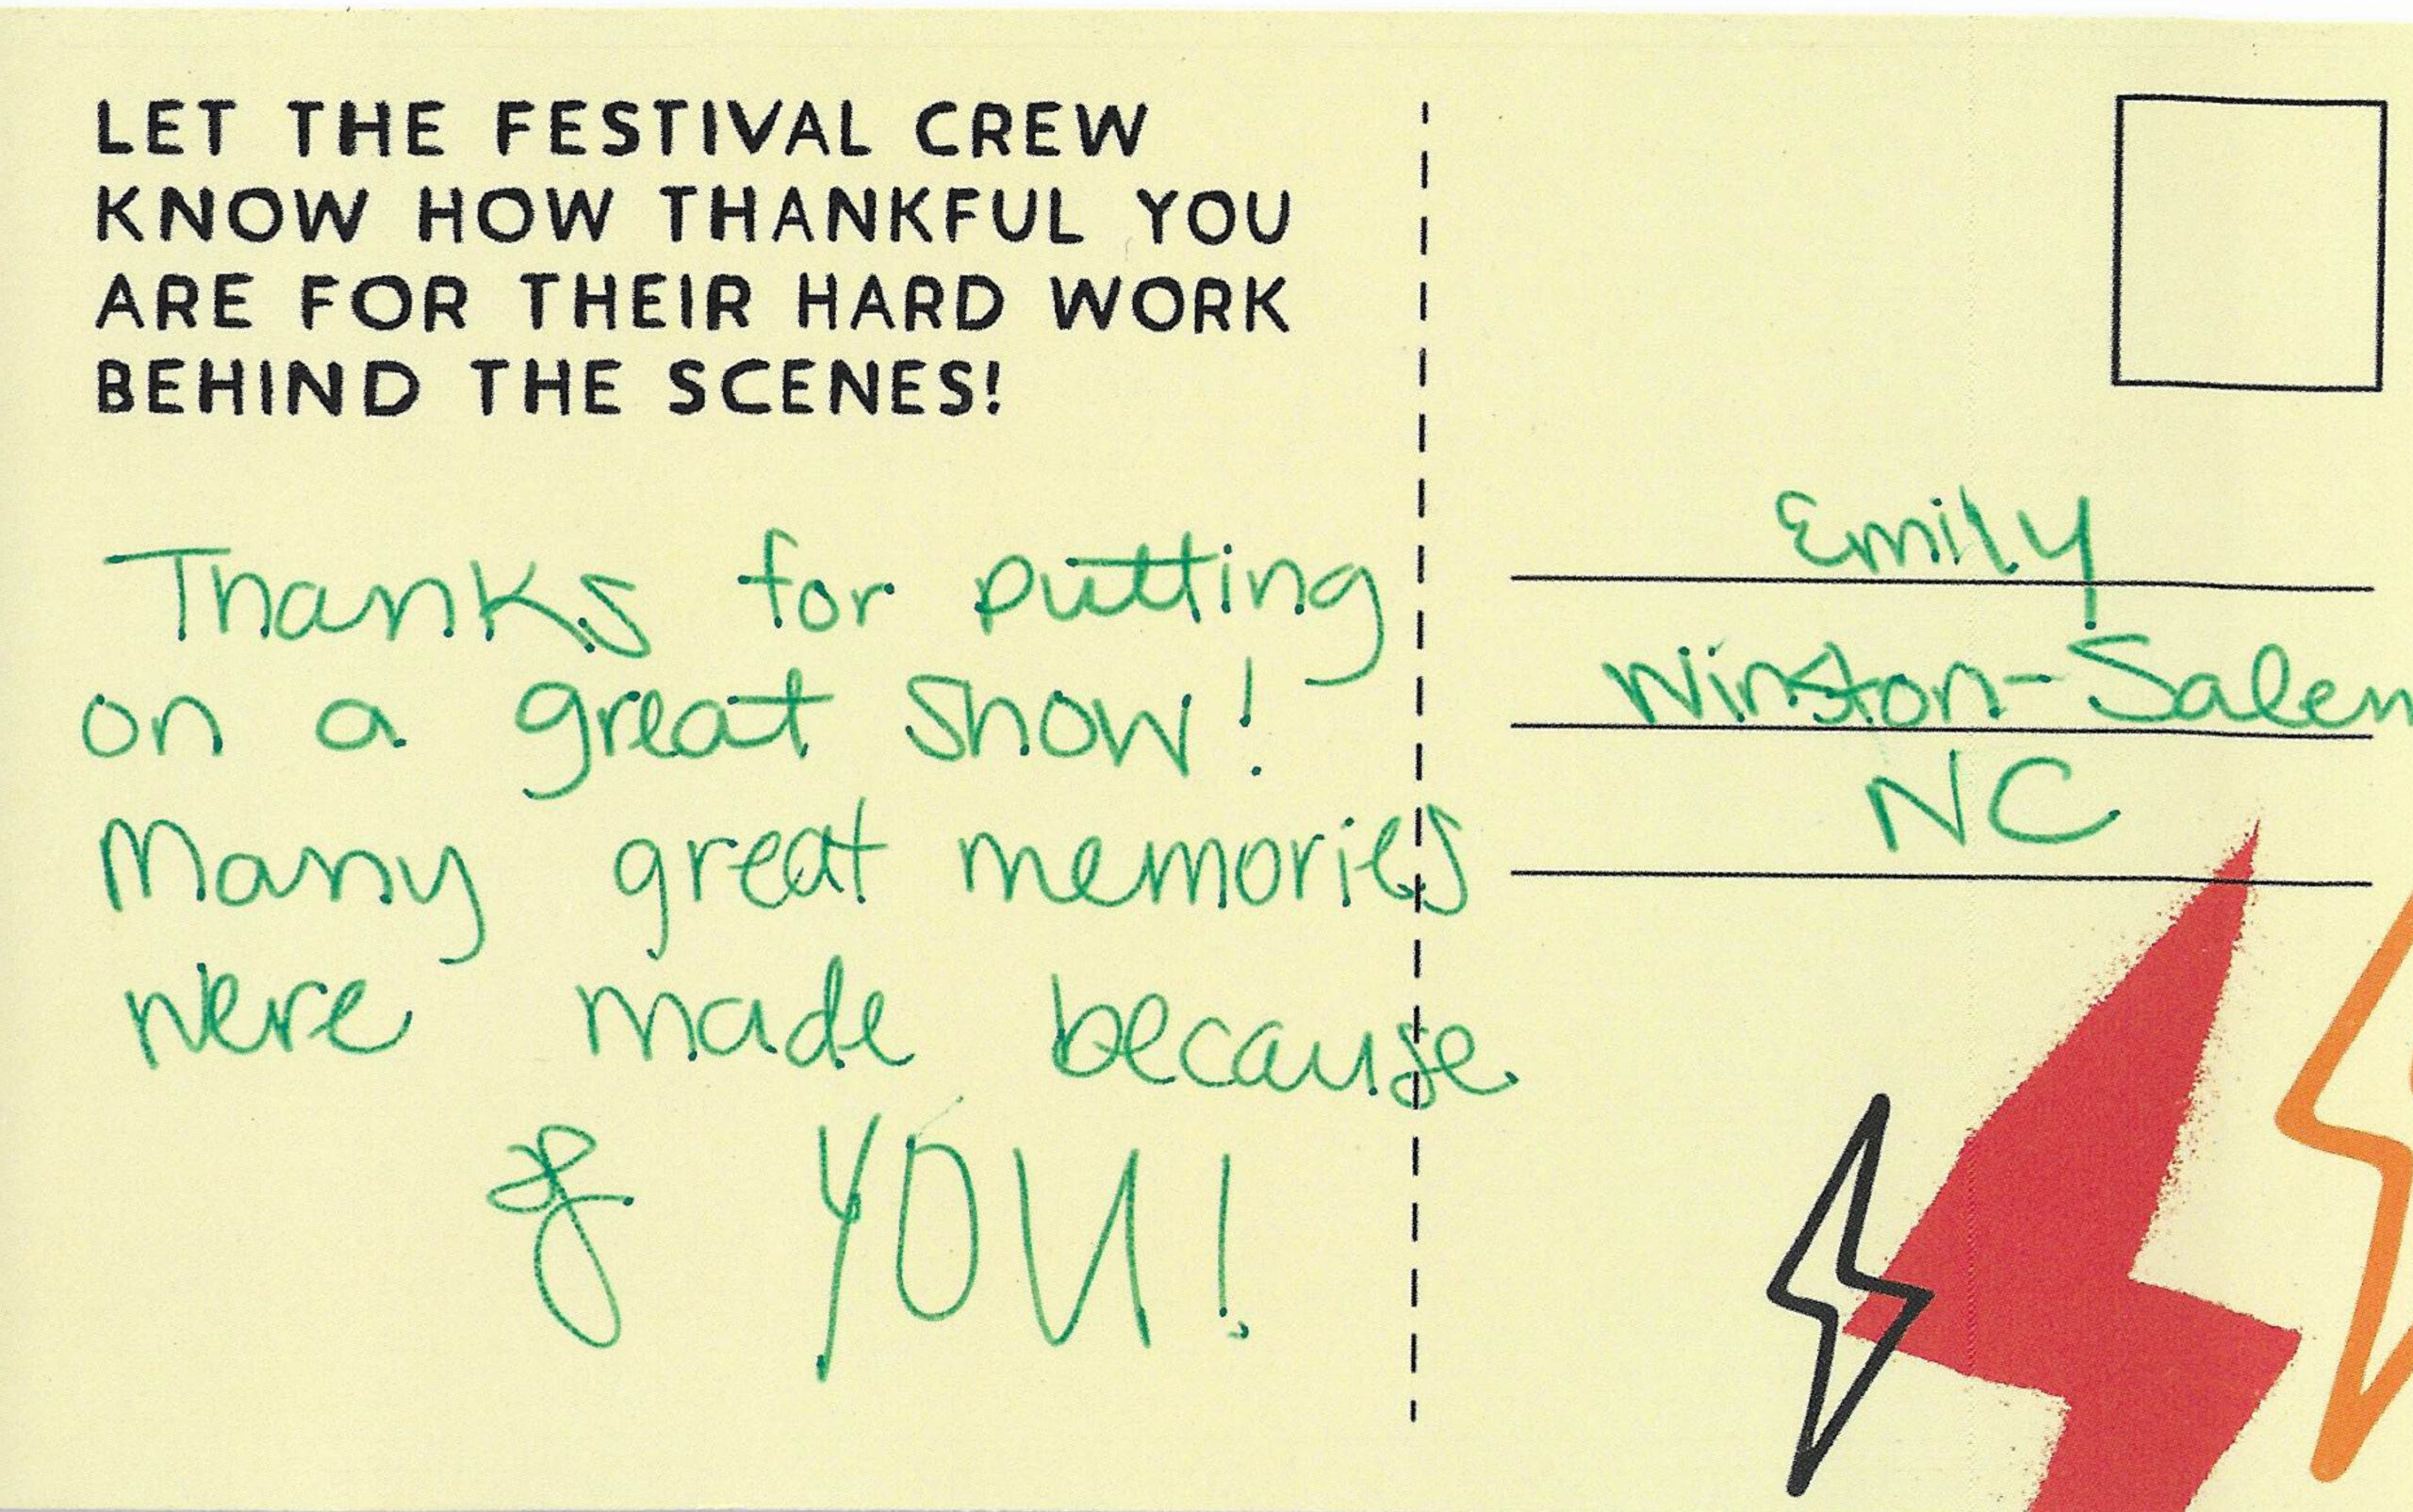 LET THE FESTIVAL CREW
KNOW HOW THANKFUL YOU
ARE FOR THEIR HARD WORK
BEHIND THE SCENES!
Thanks for putting
on a great show!
Many great memories
were made because
of YOU!
Emily
Winston-Salem
NC